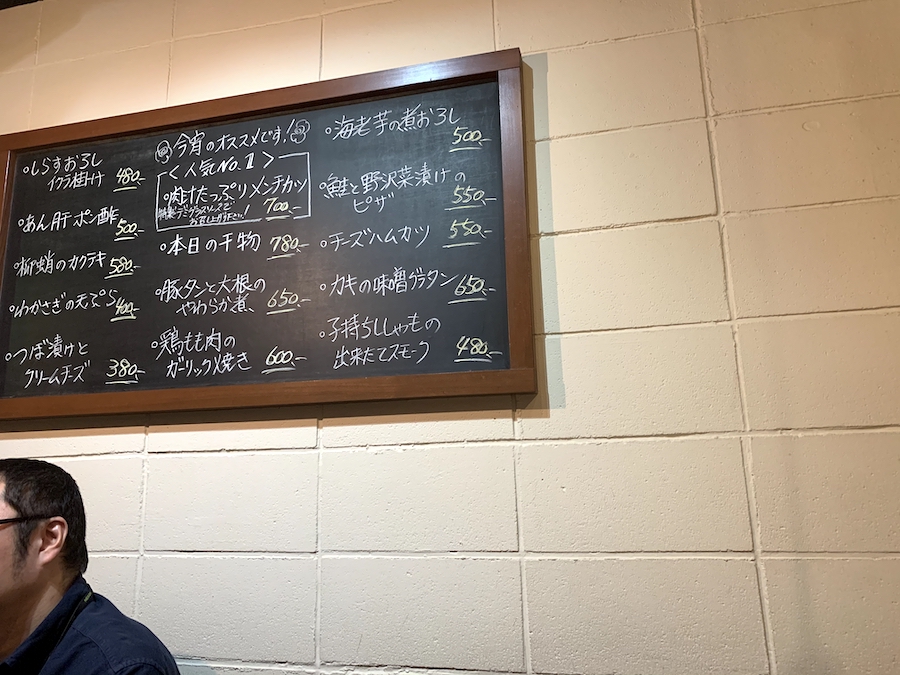 ・しらすおろし
イクラ掛け 480.-
・あん肝ポン酢 500.-
・柳蛸のカクテキ 580.-
・わかさぎの天ぷら 400.-
・つぼ漬けと
クリームチーズ 380.-
今宵のオススメです!
<人気No.1>
・肉汁たっぷりメンチカツ
特製デミグラスソースで
お召し上がり下さい! 700.-
・本日の干物 780.-
・豚タンと大根の
やわらか煮 650.-
・鶏もも肉の
ガーリック焼き 600.-
・海老芋の煮おろし
500.-
・鮭と野沢菜漬けの
ピザ 550.-
・チーズハムカツ 550.-
・カキの味噌グラタン 650.-
・子持ちししゃもの
出来たてスモーク 480.-